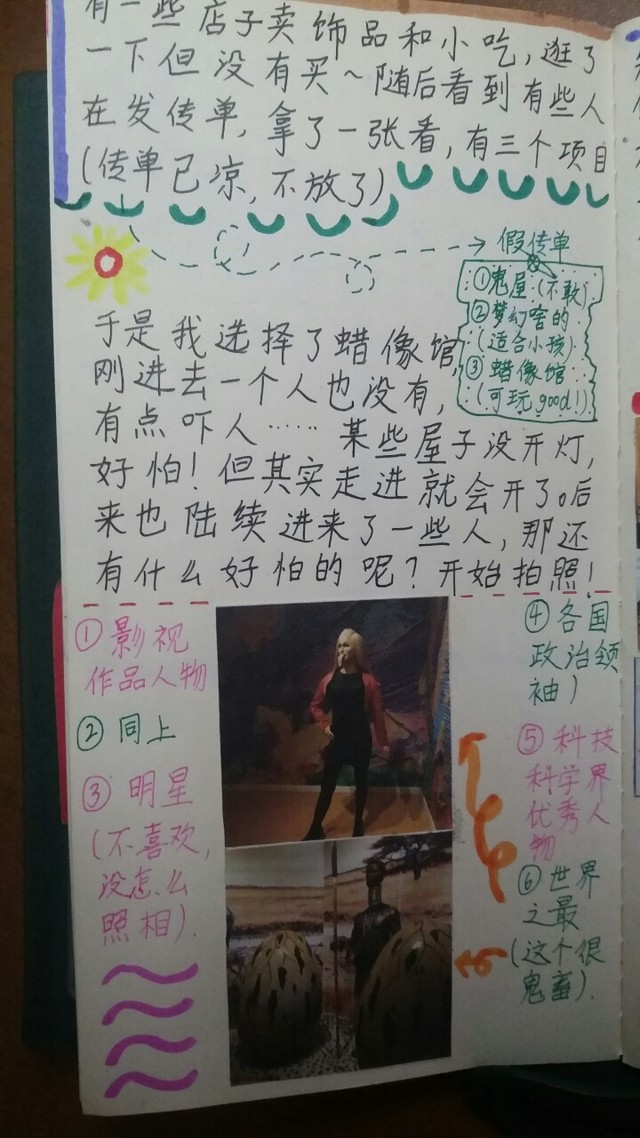 有一些店子卖饰品和小吃，逛了
一下但没有买~随后看到有些人
在发传单，拿了一张看，有三个项目
(传单已凉，不放了)
假传单
①鬼屋(不敢)
②梦幻啥的
(适合小孩)
③蜡像馆
(可玩good!)
于是我选择了蜡像馆，
刚进去一个人也没有，
有点吓人……某些屋子没开灯，
好怕！但其实走进就会开了。后
来也陆续进来了一些人，那还
有什么好怕的呢？开始拍照！
①影视
作品人物
②同上
③明星
(不喜欢，
没怎么
照相).
④各国
政治领
袖)
⑤科技
科学界
优秀人
物
⑥世界
之最
(这个很
鬼畜).